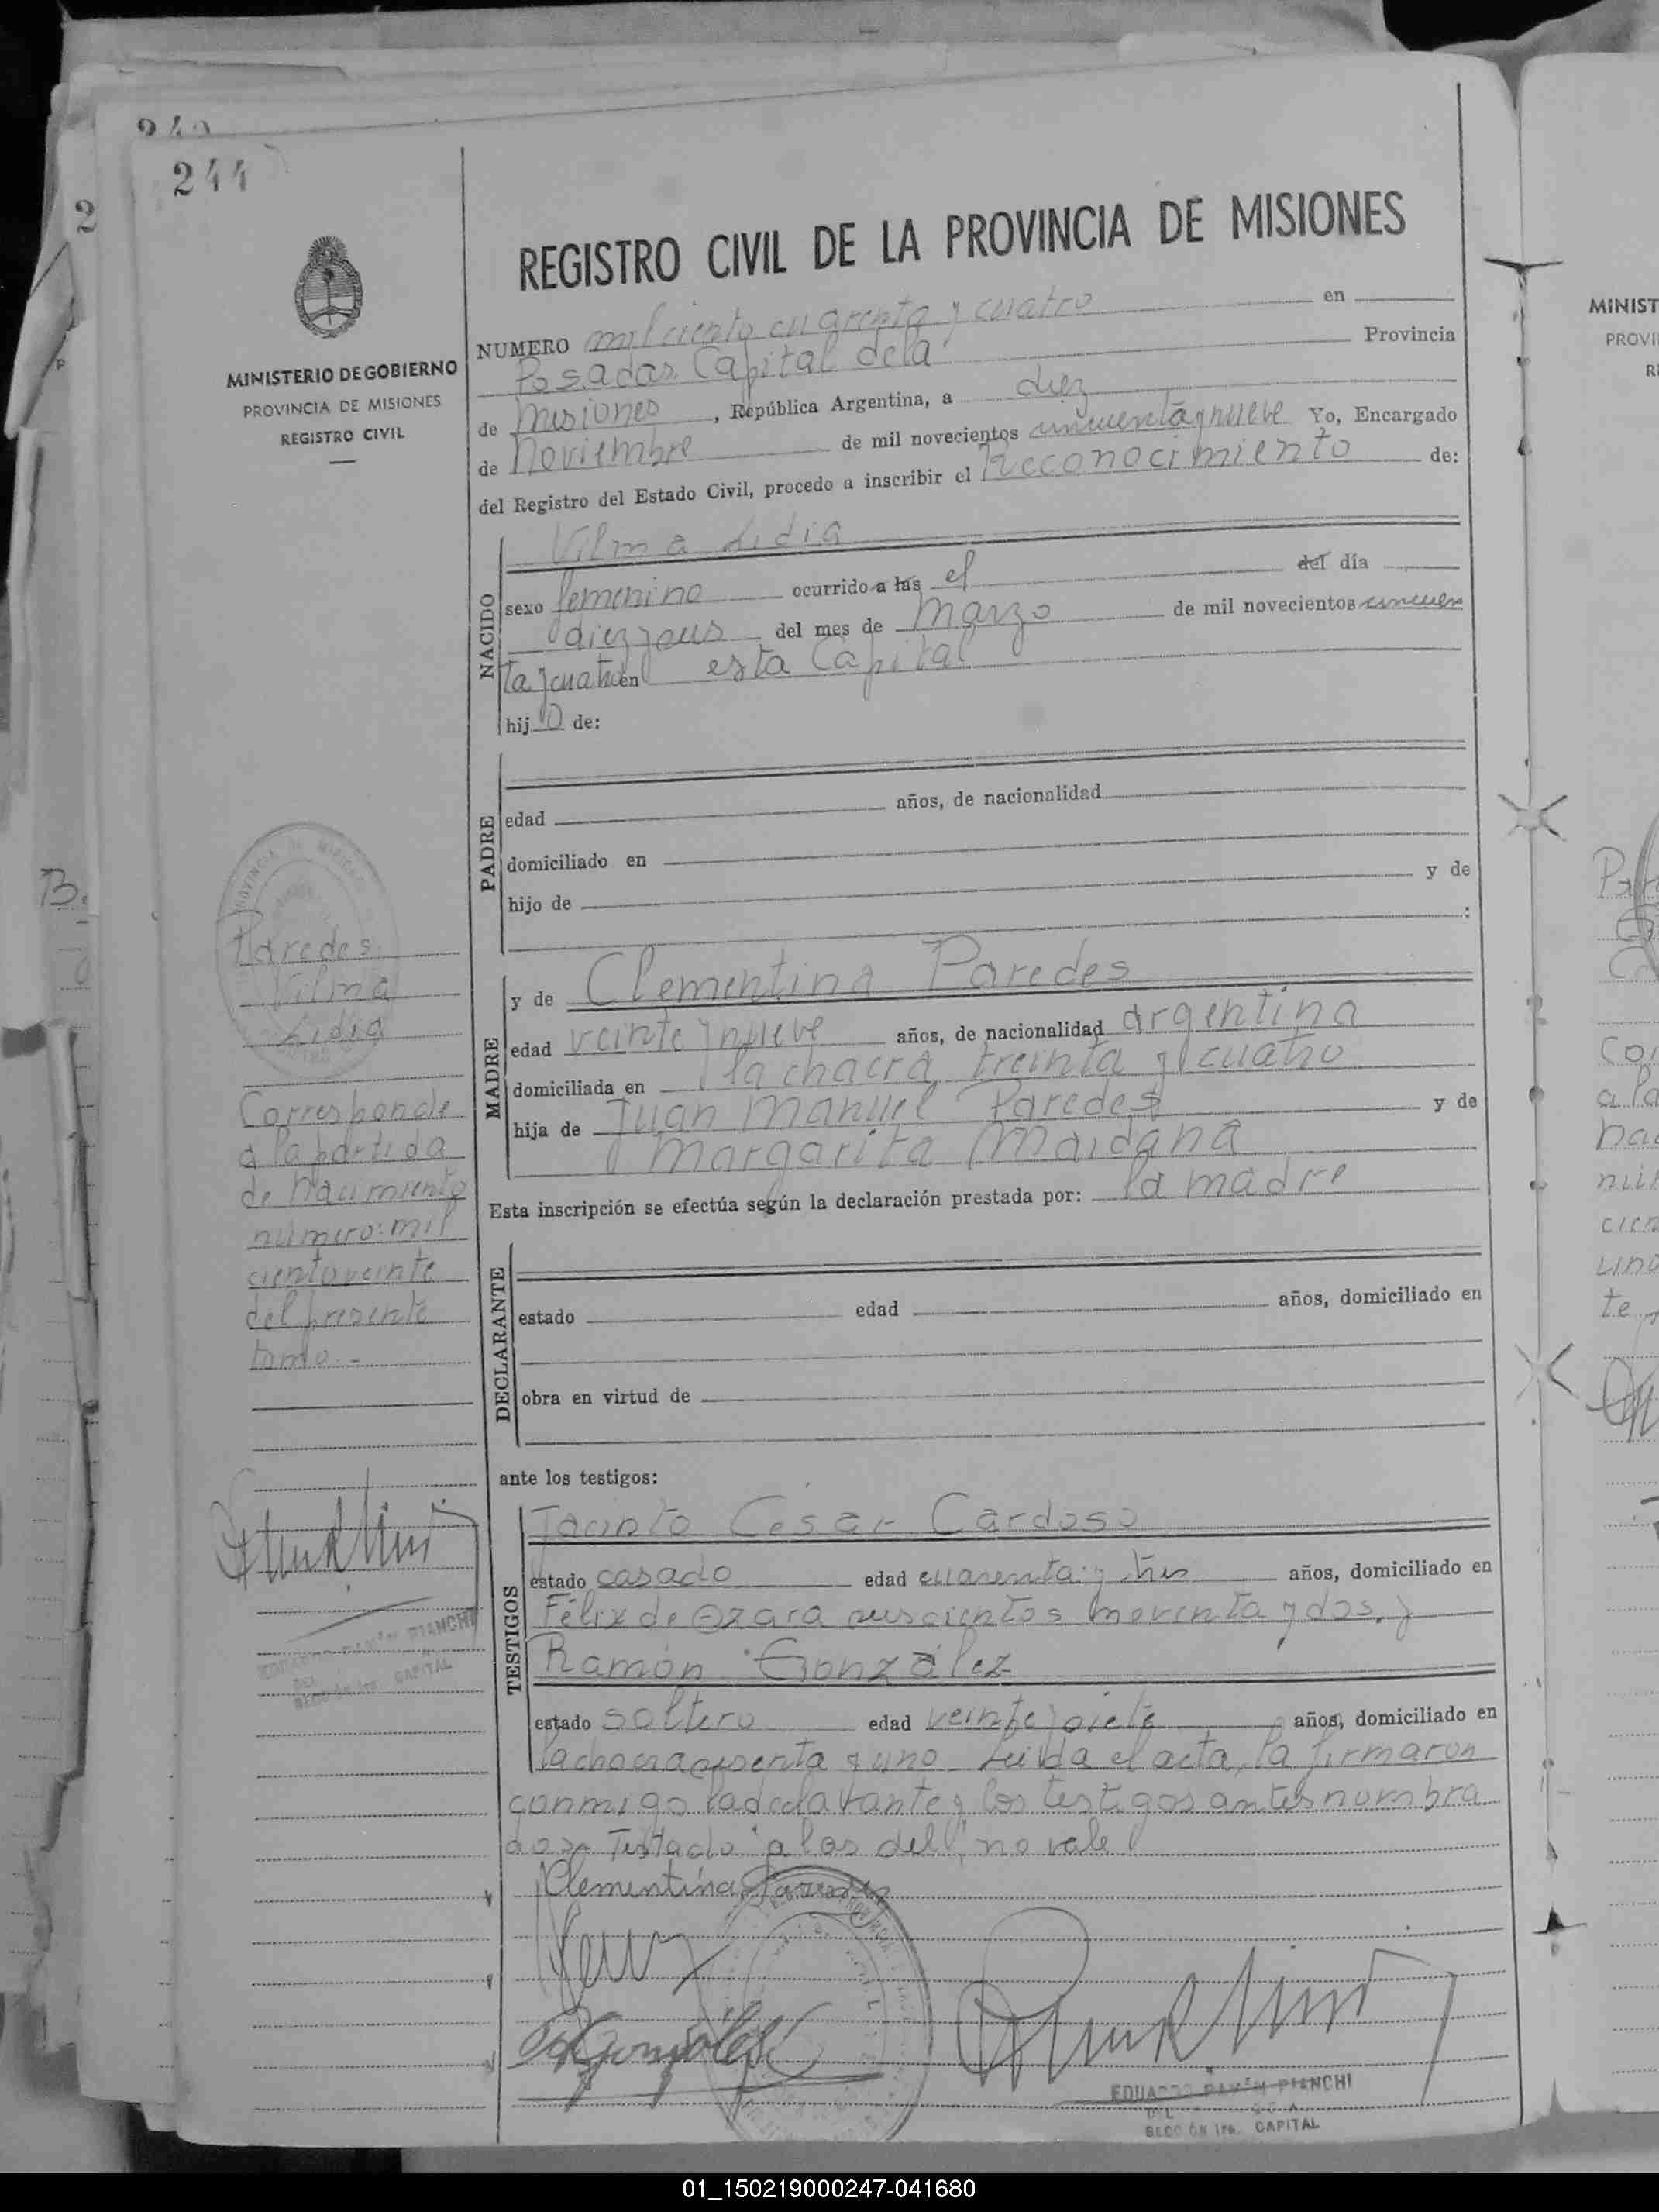 244
MINISTERIO DE GOBIERNO
PROVINCIA DE MISIONES
REGISTRO CIVIL
REGISTRO CIVIL DE LA PROVINCIA DE MISIONES
NUMERO mil ciento cuarenta y cuatro en
Posadas Capital de la Provincia
de Misiones, República Argentina, a diez
de Noviembre de mil novecientos cincuenta y nueve Yo, Encargado
del Registro del Estado Civil, procedo a inscribir el Reconocimiento de:
NACIDO
Vilma Lidia
sexo femenino ocurrido a las el del día
diez y seis del mes de Marzo de mil novecientos cincuen
ta y cuatro en esta Capital
hijo de:
PADRE
edad años, de nacionalidad
domiciliado en
hijo de y de
:
MADRE
y de Clementina Paredes
edad veinte y nueve años, de nacionalidad argentina
domiciliada en la chacra treinta y cuatro
hija de Juan Manuel Paredes y de
Margarita Maidana
Esta inscripción se efectúa según la declaración prestada por: la madre
DECLARANTE
estado edad años, domiciliado en
obra en virtud de
ante los testigos:
TESTIGOS
Jacinto César Cardoso
estado casado edad cuarenta y tres años, domiciliado en
Félix de Azara seiscientos noventa y dos, y
Ramón González
estado soltero edad veinte y siete años, domiciliado en
la chacra sesenta y uno. Leida el acta, la firmaron
conmigo la declarante y los testigos antes nombra
dos Testado "a las del", no vale
Clementina Paredes
González
EDUARDO RAMÓN PIANCHI
SECCIÓN 1ra. CAPITAL
Paredes
Vilma
Lidia
Corresponde
a la partida
de nacimiento
número: mil
ciento veinte
del presente
tomo.-
PIANCHI
CAPITAL
MINIST
PROVI
01_150219000247-041680